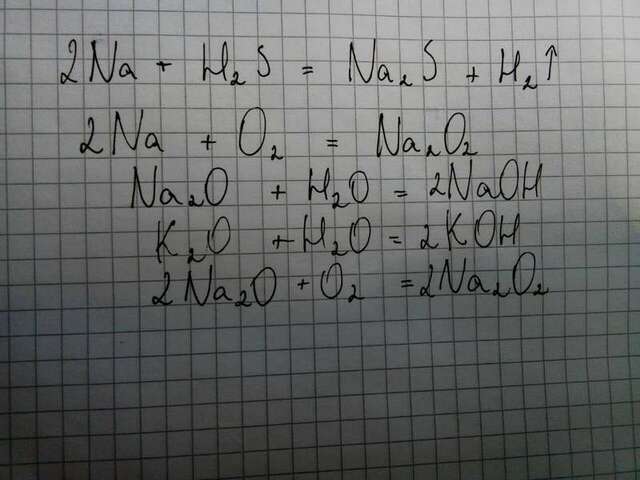 2Na + H₂S = Na₂S + H₂↑
2Na + O₂ = Na₂O₂
Na₂O + H₂O = 2NaOH
K₂O + H₂O = 2KOH
2Na₂O + O₂ = 2Na₂O₂